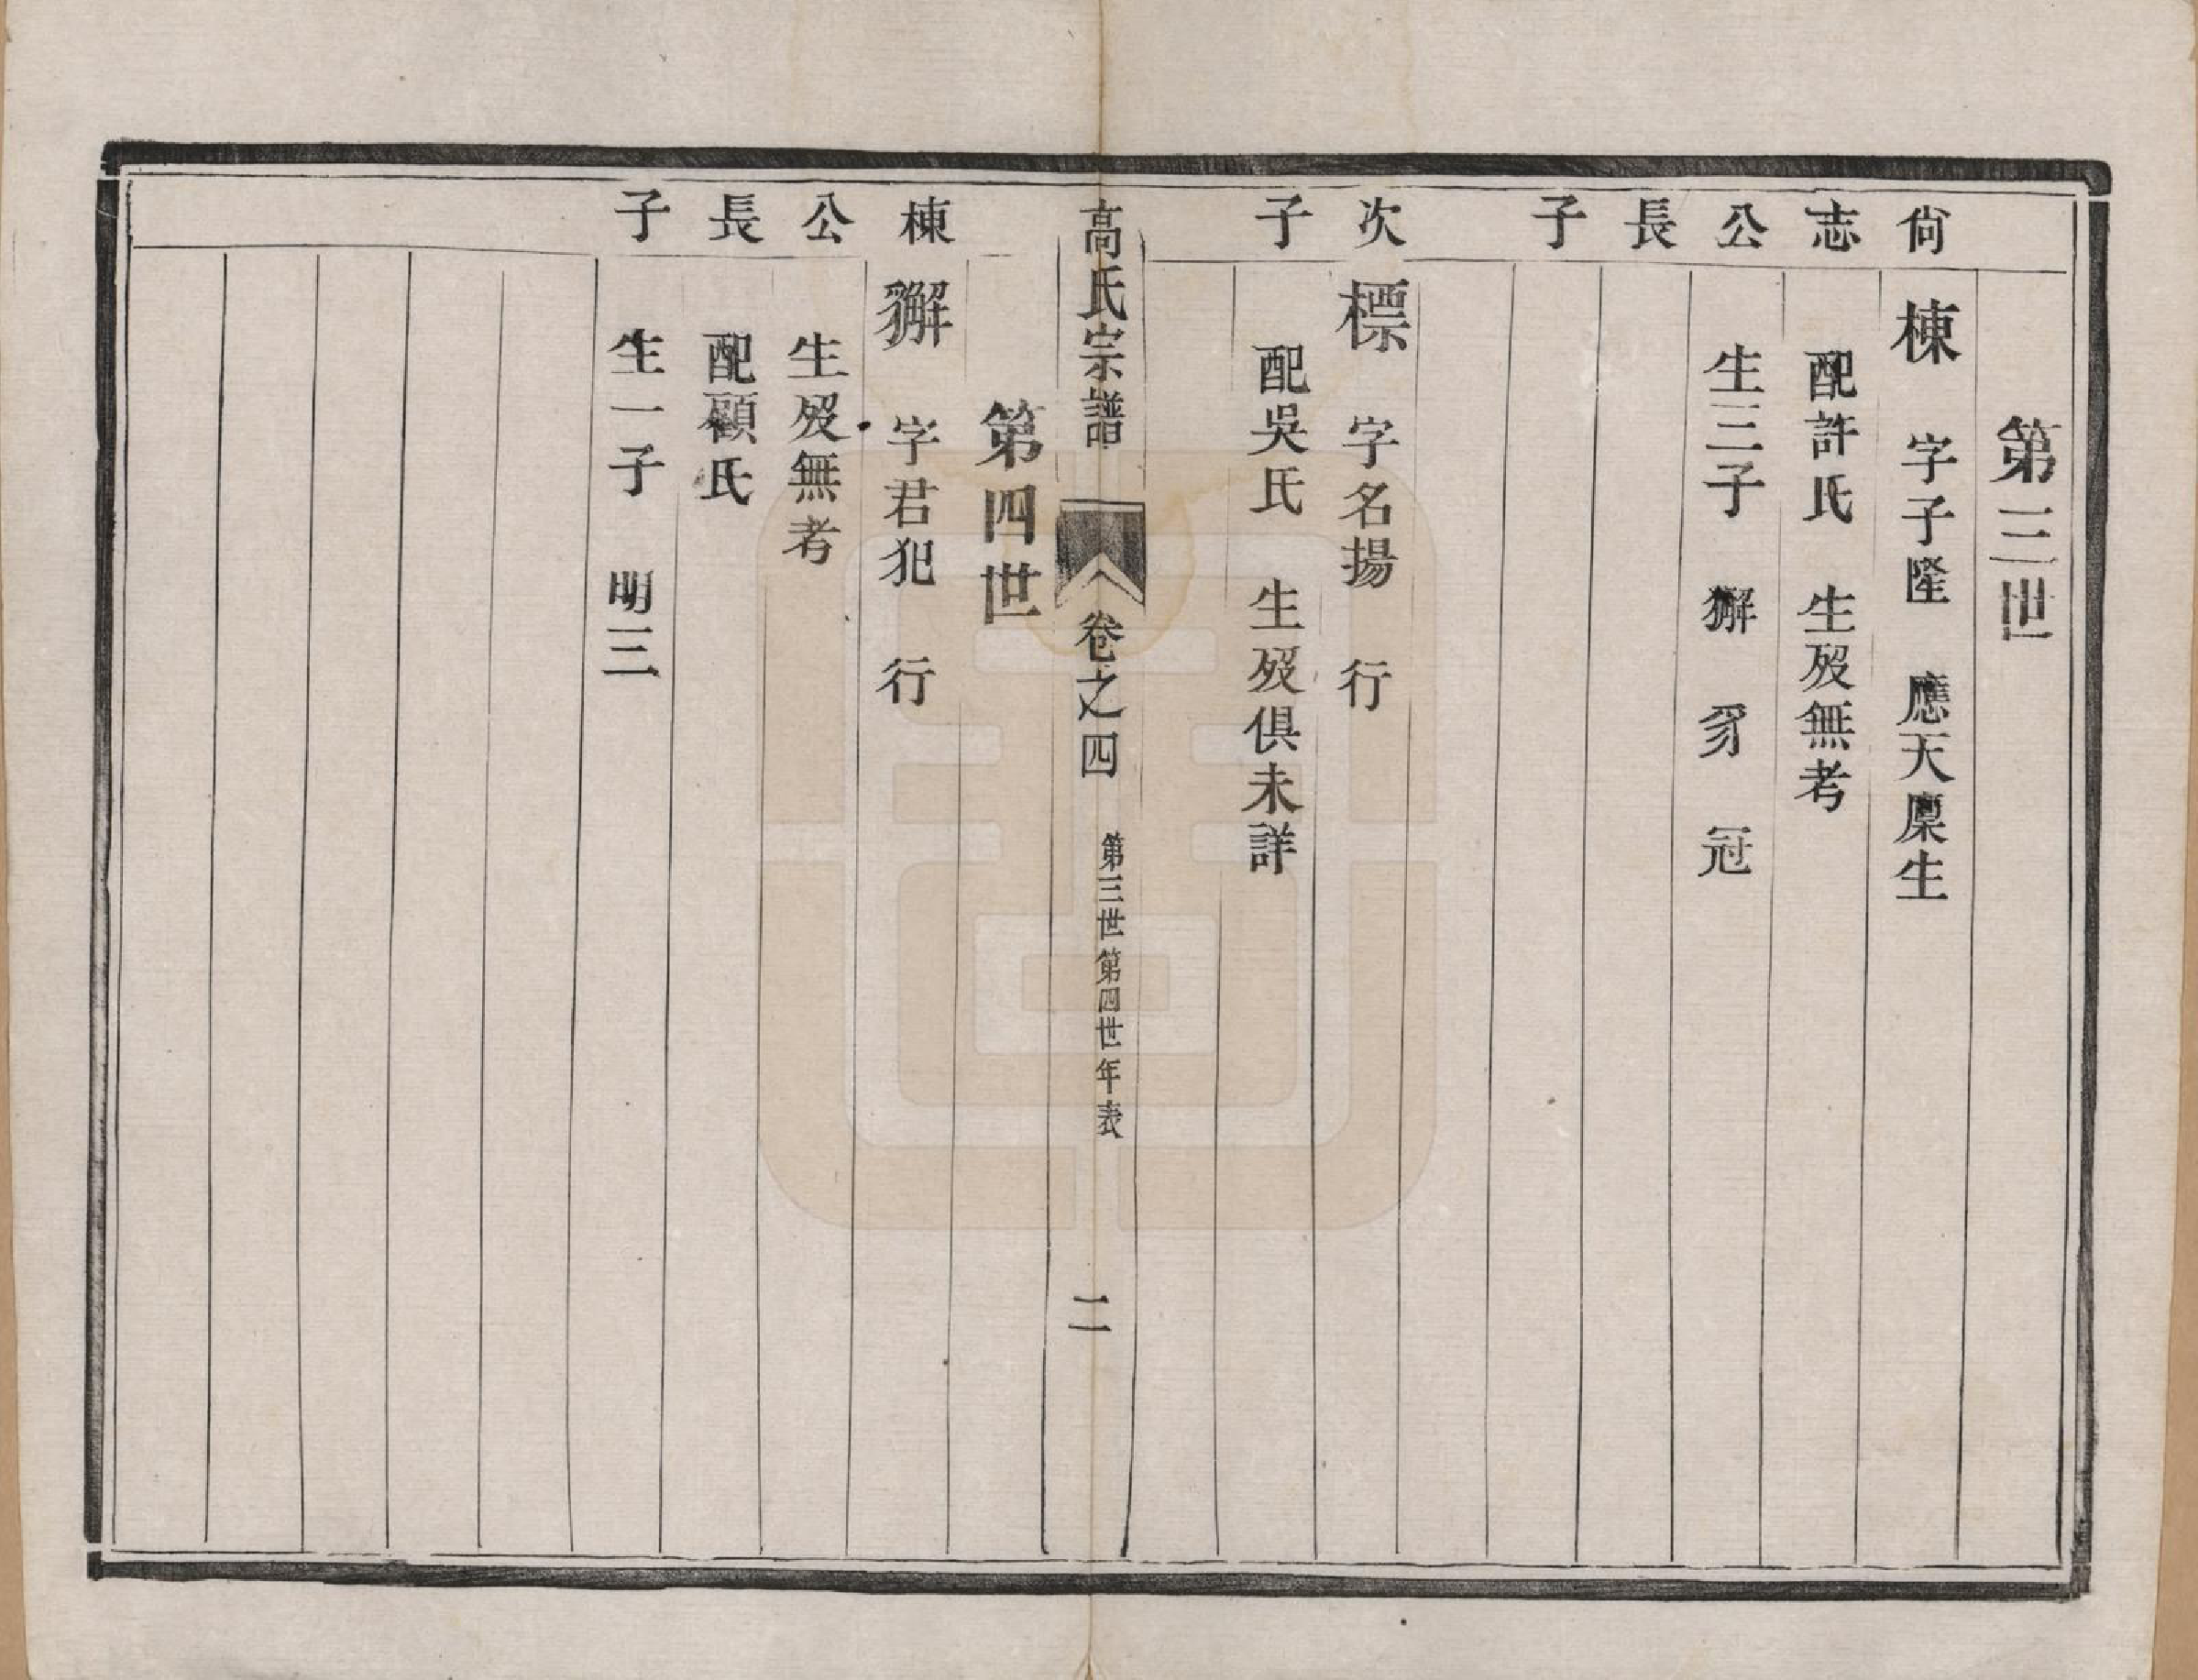 第三世
尙志公長子
棟　字子隆　應天廩生
配許氏　生歿無考
生三子　獬　豸　冠
次子
標　字名揚　行
配吳氏　生歿俱未詳
高氏宗譜　卷之四　第三世第四世年表　二
第四世
棟公長子
獬　字君犯　行
生歿無考
配顧氏
生一子　明三